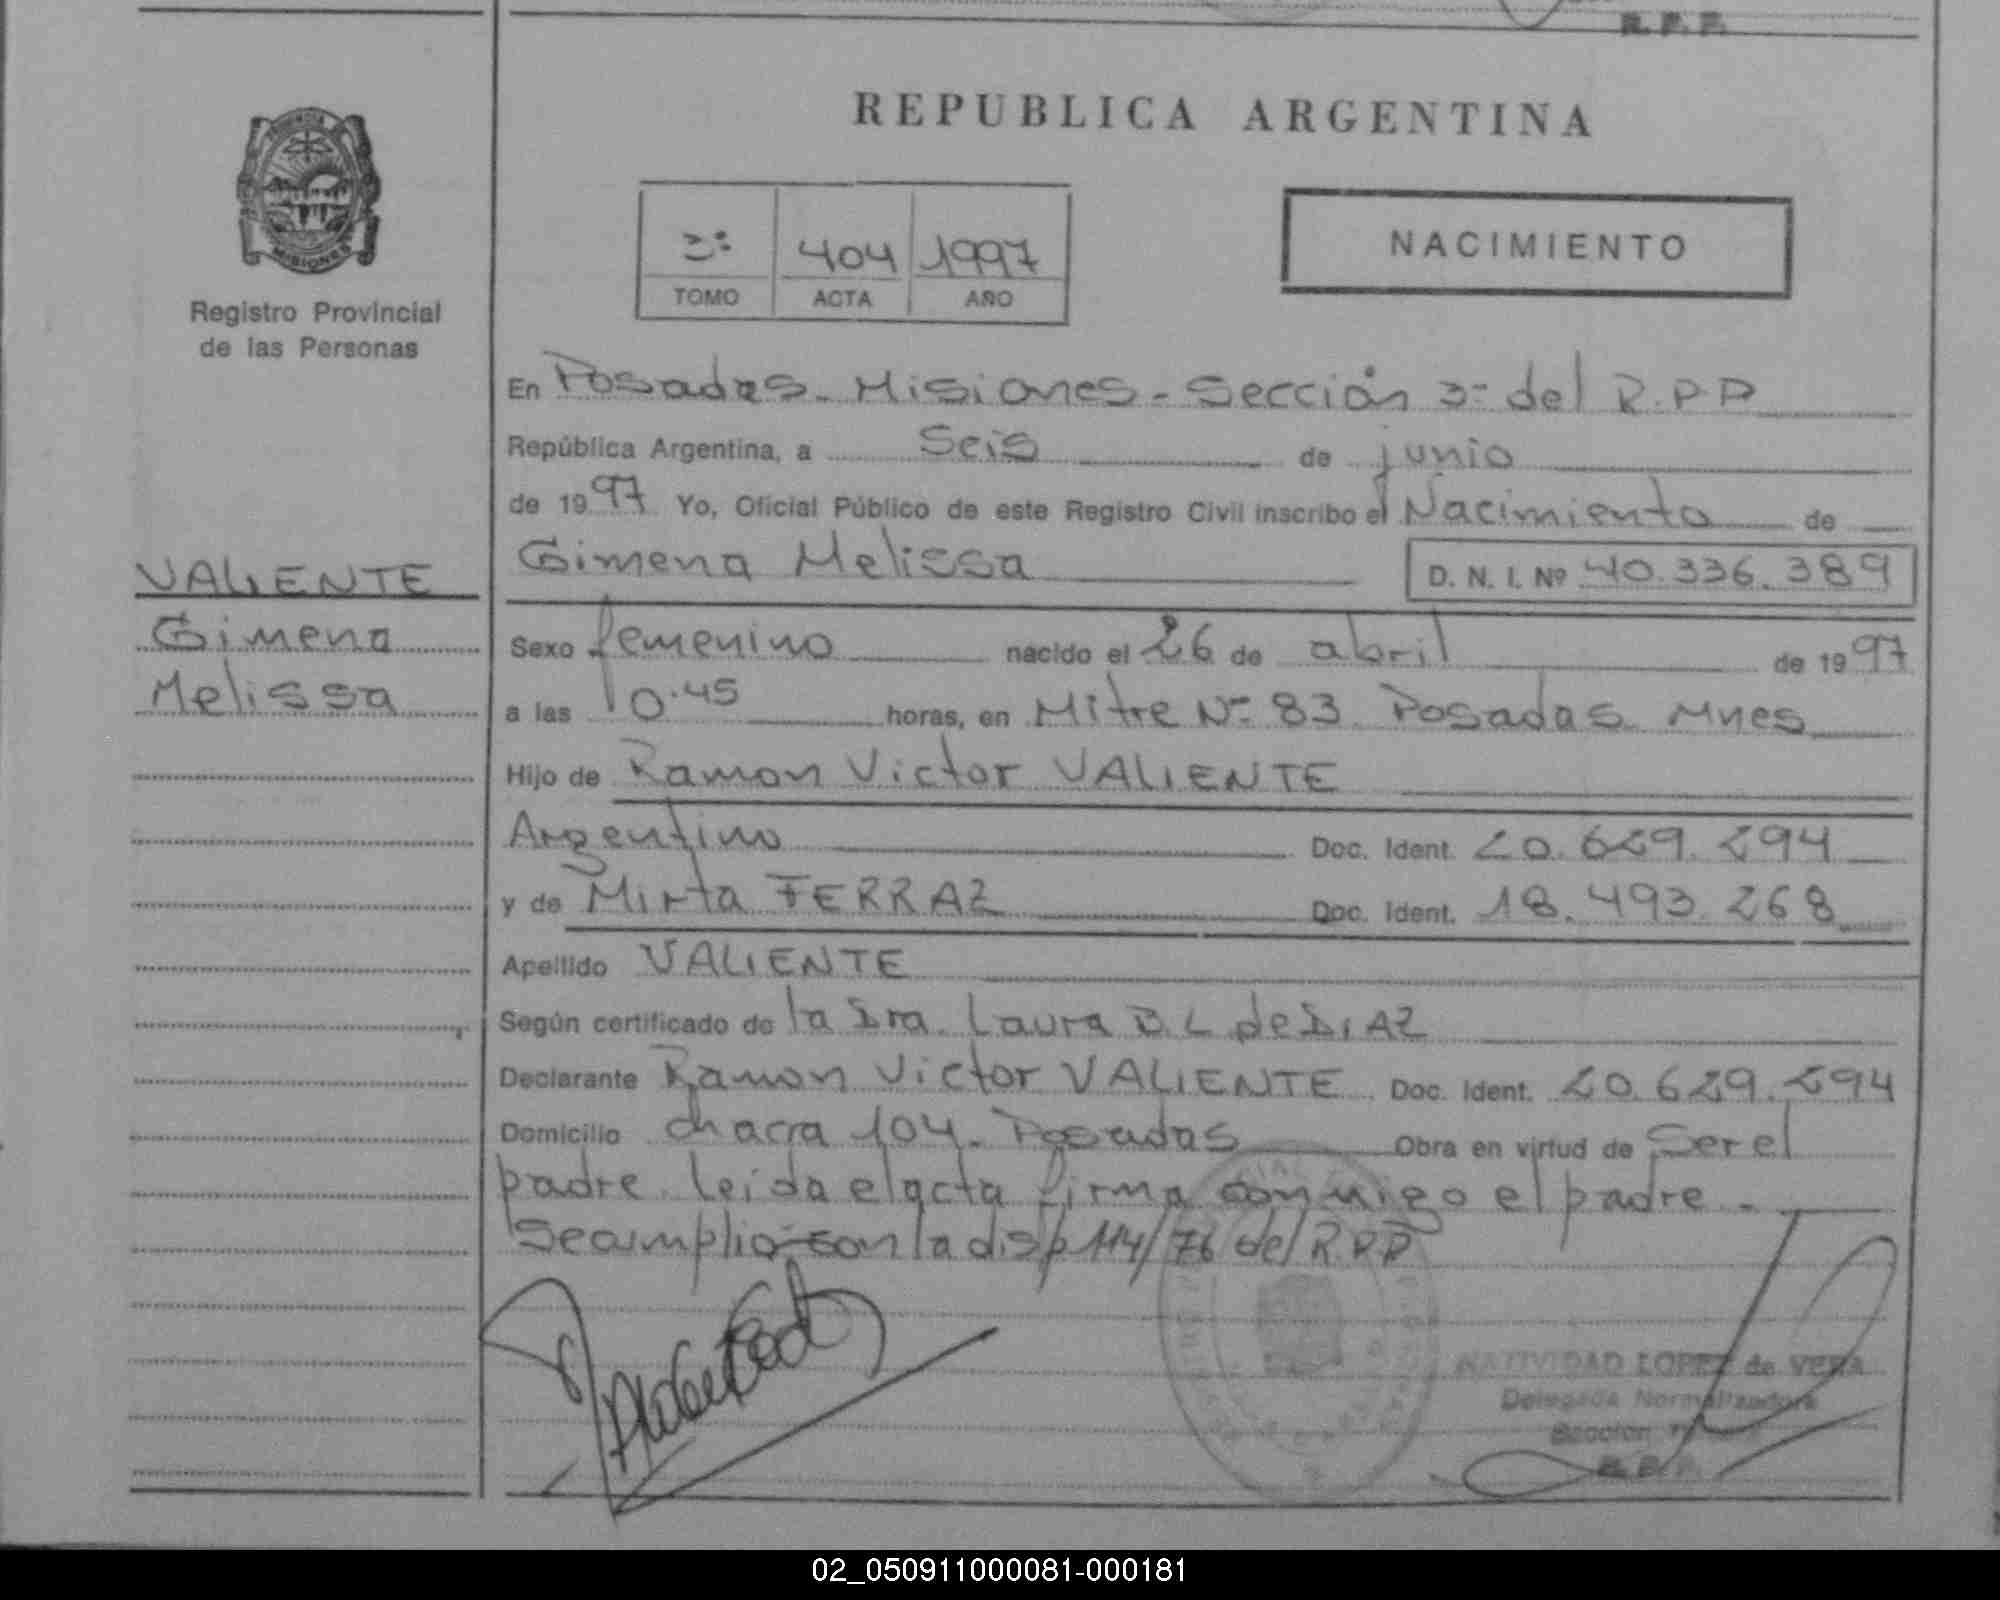 R. P. P.
REPUBLICA ARGENTINA
PROVINCIA DE
MISIONES
Registro Provincial
de las Personas
3º 404 1997
TOMO ACTA AÑO
NACIMIENTO
En Posadas. Misiones - Sección 3º del R.P.P
República Argentina, a Seis de junio
de 1997 Yo, Oficial Público de este Registro Civil inscribo el Nacimiento de
Gimena Melissa D. N. I. Nº 40.336.389
VALIENTE
Gimena
Melissa
Sexo femenino nacido el 26 de abril de 1997
a las 10.45 horas, en Mitre Nº 83 Posadas Mnes
Hijo de Ramon Victor VALIENTE
Argentino Doc. Ident. 20.629.294
y de Mirta FERRAZ Doc. Ident. 18.493.268
Apellido VALIENTE
Según certificado de la Dra. Laura B. L de DIAZ
Declarante Ramon Victor VALIENTE Doc. Ident. 20.629.294
Domicilio chacra 104. Posadas Obra en virtud de Ser el
padre. leida el acta firma conmigo el padre. -
Secumplio con la disp 114/76 del R.P.P
NATIVIDAD LOPEZ de VERA
Delegada Normalizadora
Seccion
R. P. P.
02_050911000081-000181